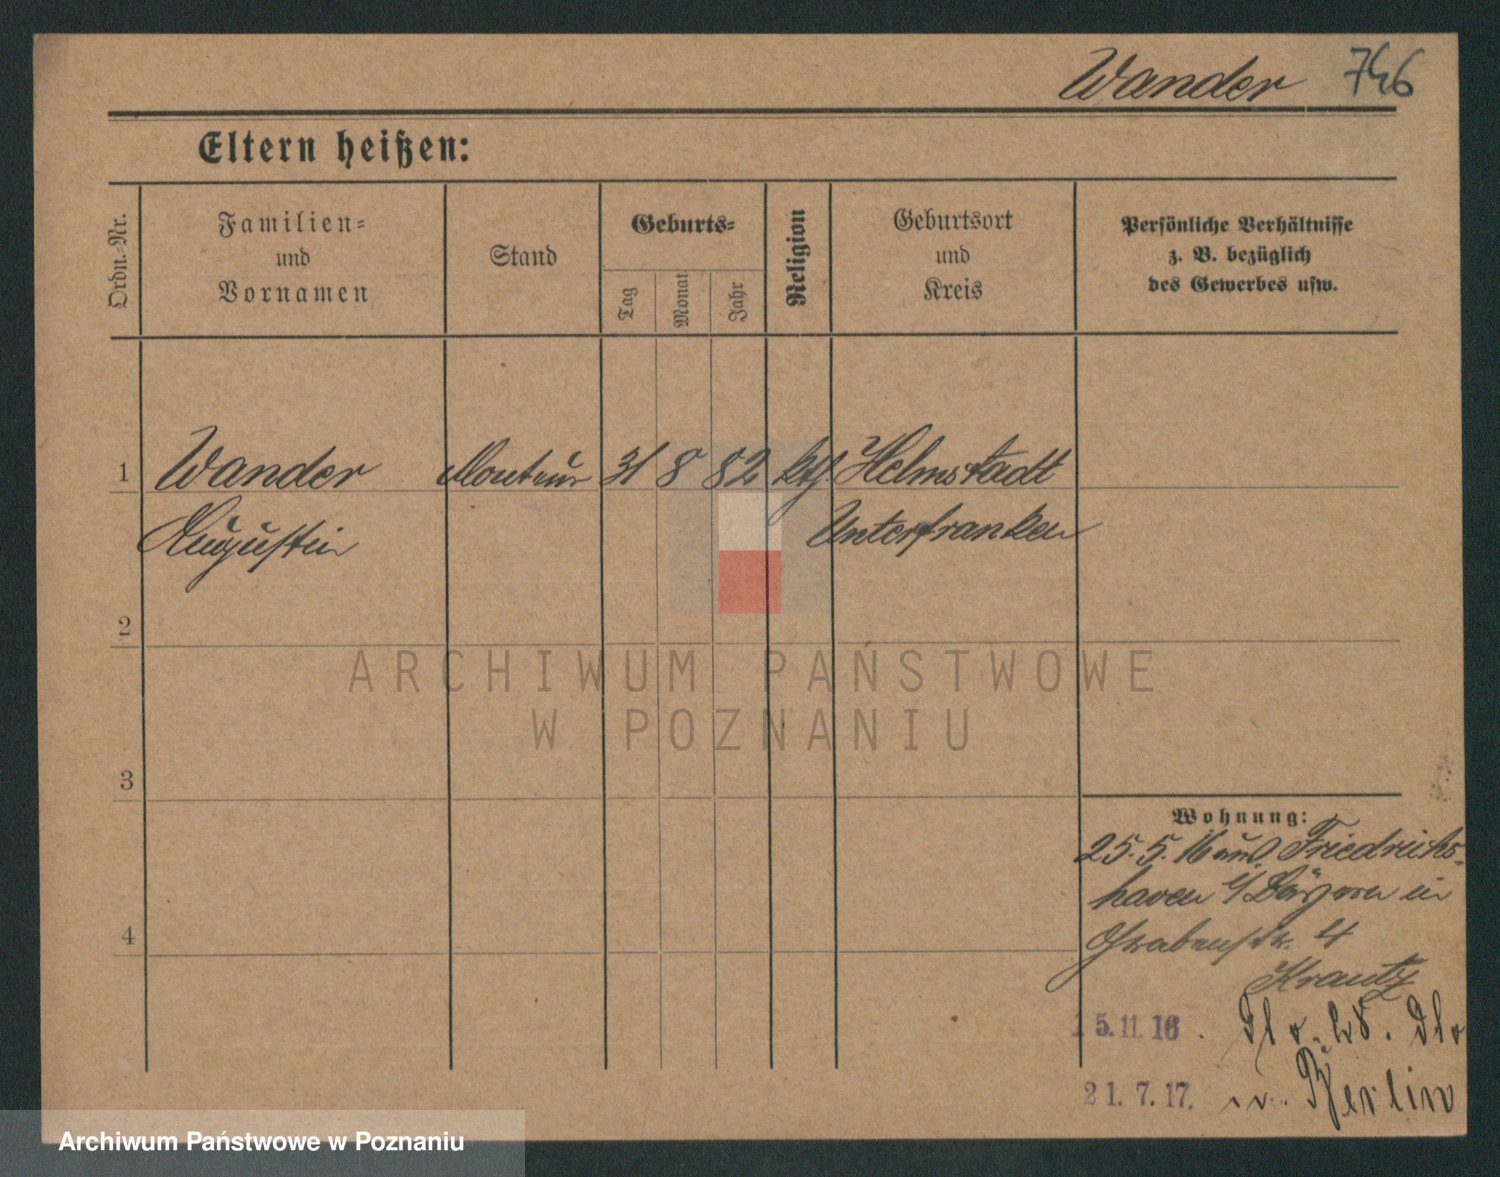 Wander 746
Eltern heißen:
Ordn.-Nr.
Familien-
und
Vornamen
Stand
Geburts-
Tag
Monat
Jahr
Religion
Geburtsort
und
Kreis
Persönliche Verhältnisse
z. B. bezüglich
des Gewerbes usw.
1 Wander Monteur 31 8 82 kth Helmstadt
Augustin Unterfranken
2
3
4
Wohnung:
25.5.16 aus Friedrichs-
haven in
Grabenstr. 4
Krantz
15.11.16.
21.7.17. n. Berlin
ARCHIWUM PAŃSTWOWE
W POZNANIU
Archiwum Państwowe w Poznaniu